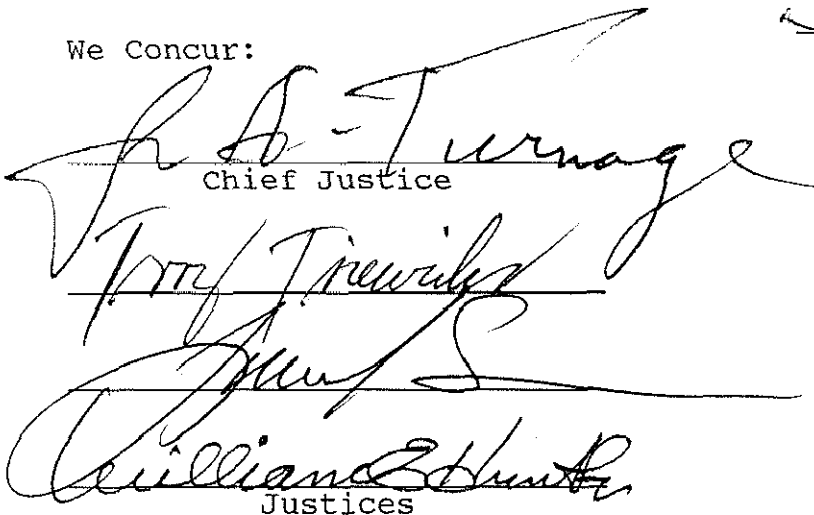 We Concur:
J. A. Turnage
Chief Justice
Terry Trieweiler
William E Hunt Sr
Justices